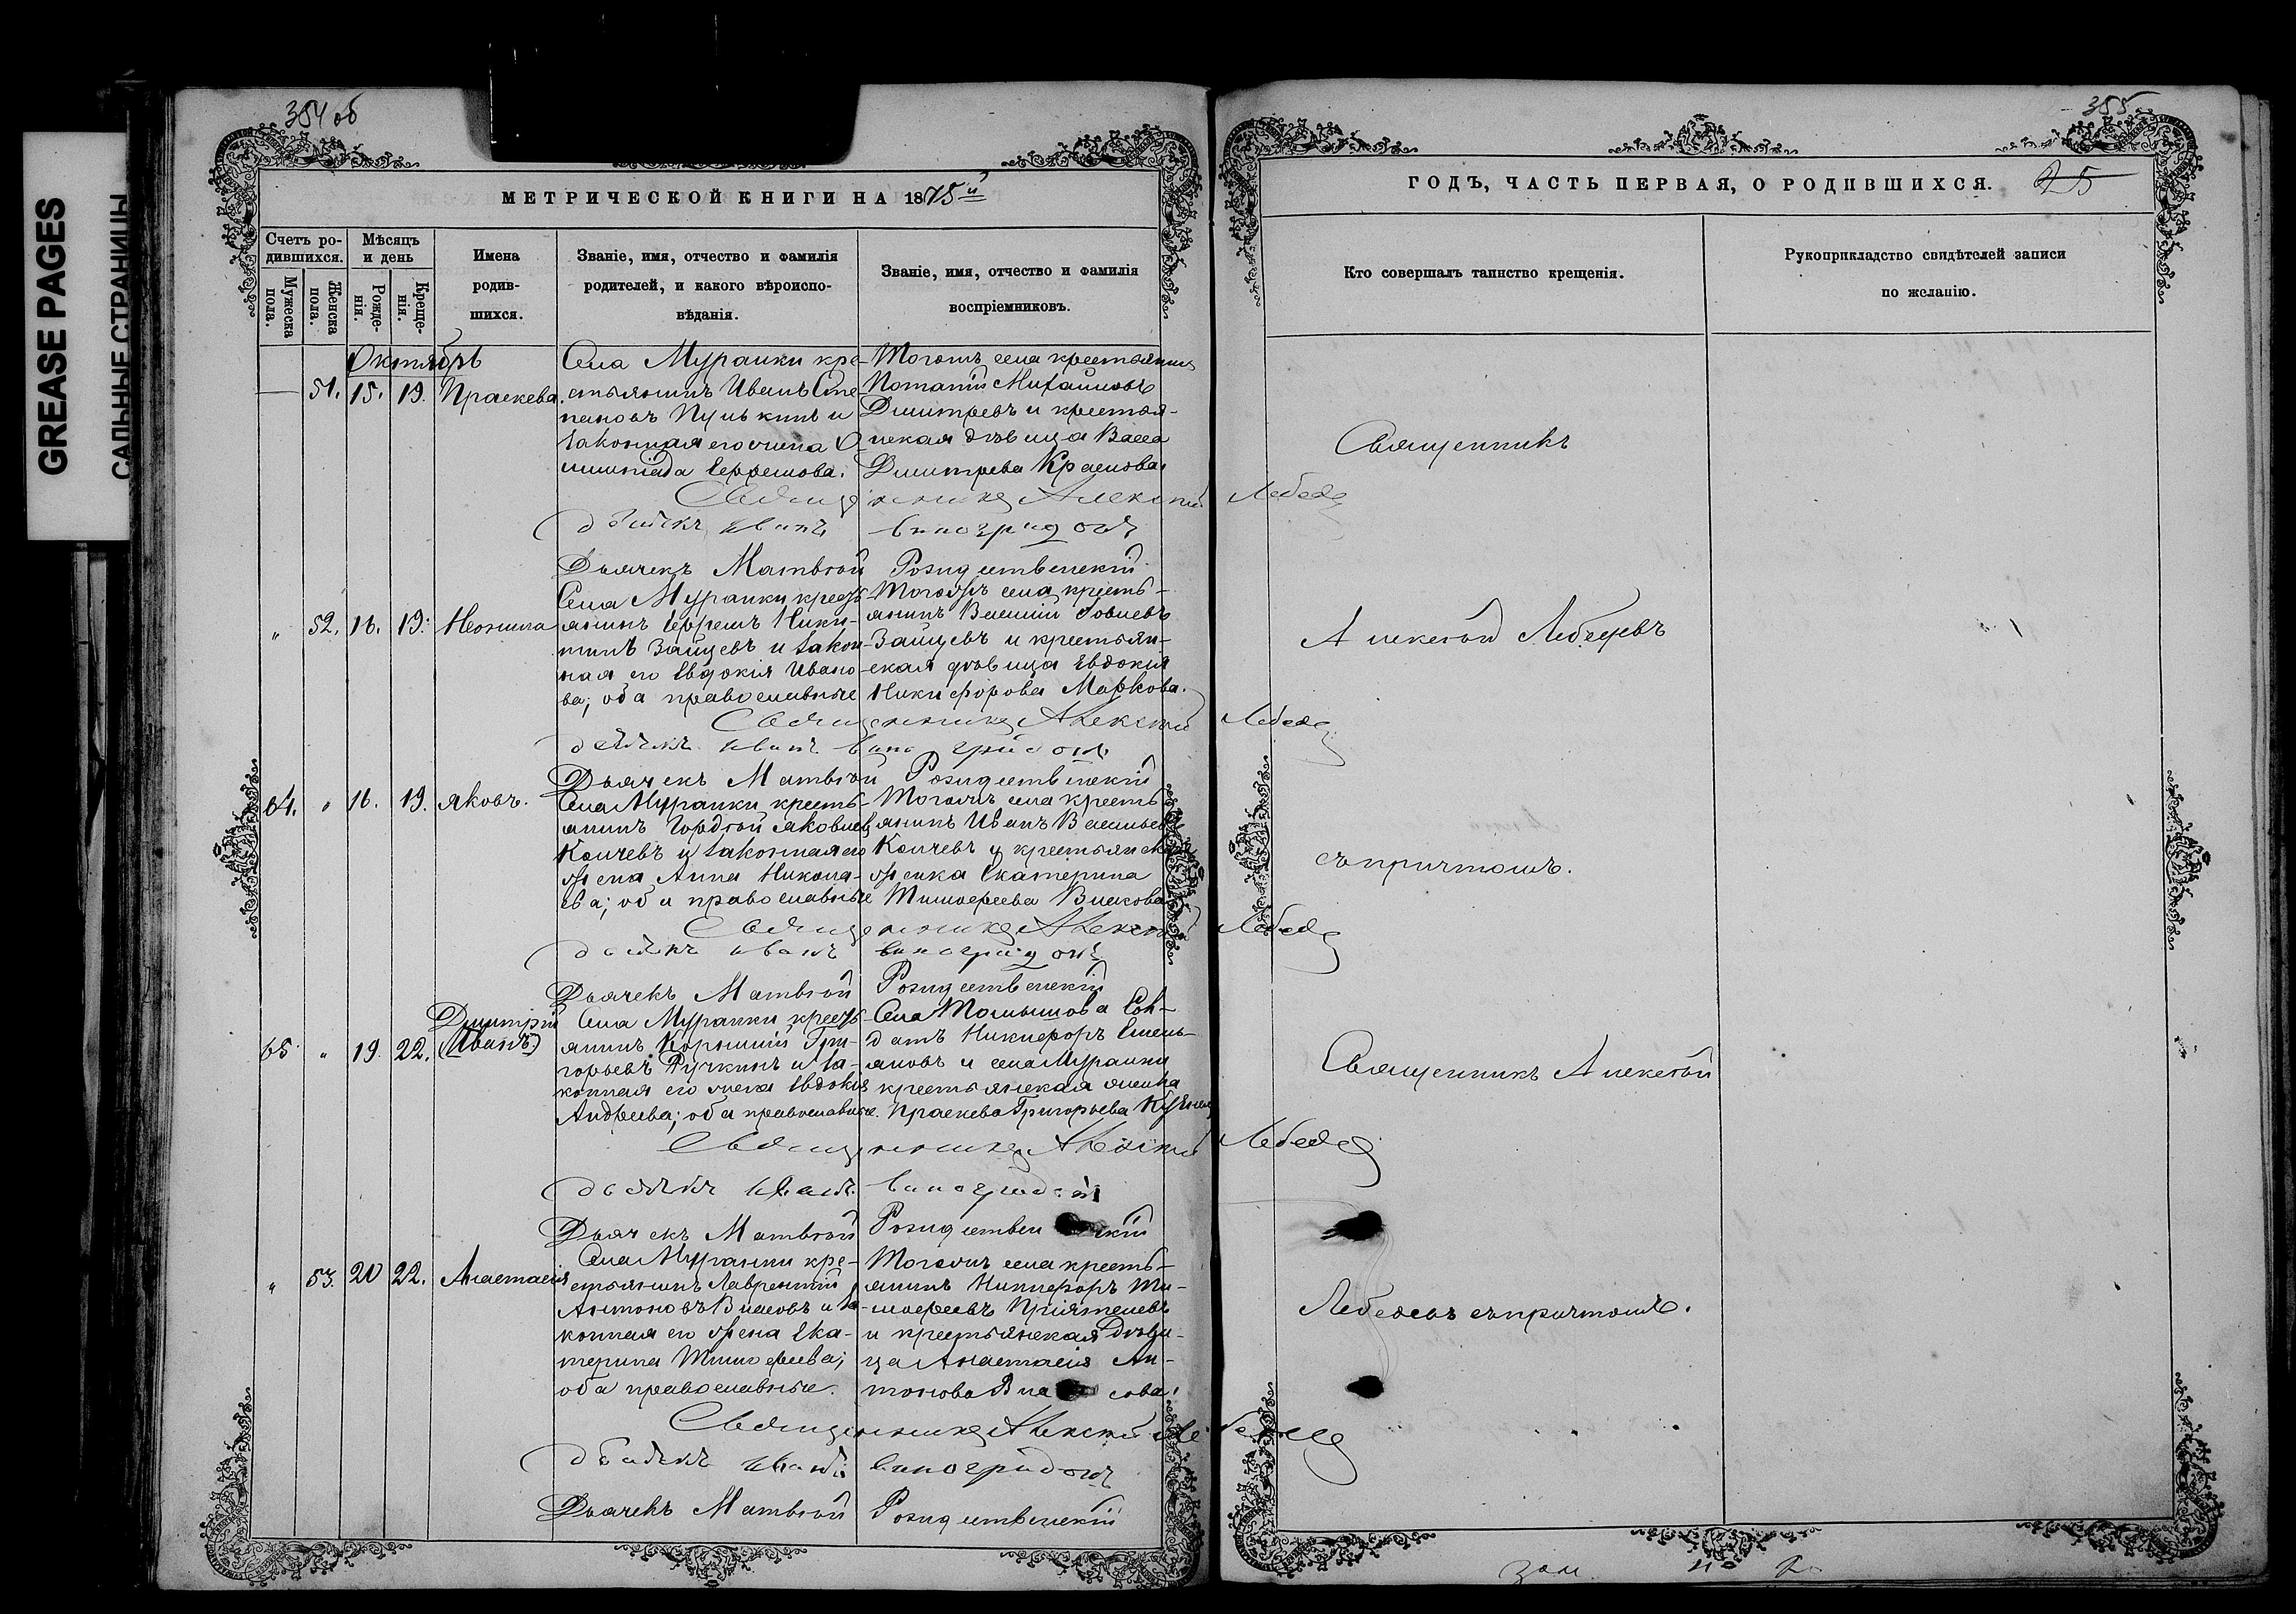 GREASE PAGES
САЛЬНЫЕ СТРАНИЦЫ
354 об
МЕТРИЧЕСКОЙ КНИГИ НА 1875й
Счетъ ро-
дившихся.
Мужеска
пола.
Женска
пола.
Мѣсяцъ
и день
Рожде-
нія.
Креще-
нія.
Имена
родив-
шихся.
Званіе, имя, отчество и фамилія
родителей, и какого вѣроиспо-
вѣданія.
Званіе, имя, отчество и фамилія
воспріемниковъ.
Октябрь
51. 15. 19. Праскева
Села Муранки кре-
стьянинъ Иванъ Сте-
пановъ и
законная его жена О-
Тогожъ села крестьянинъ
Потапій Михайловъ
Дмитревъ и крестья-
нская дѣвица Васса
Дмитрева Краснова.
Священникъ Алексѣй Лебедев
Дьякъ Иванъ Виноградовъ
Дьячекъ Матвѣй Рождественскій
„ 52. 16. 19. Неонила
Села Муранки кресть-
янинъ Ефремъ Ники-
тинъ Зайцевъ и закон-
ная его Евдокія Ивано-
ва; оба православные
Тогожъ села кресть-
янинъ Василій
Зайцевъ и крестьян-
ская дѣвица Евдокія
Никифорова Маркова.
Священникъ Алексѣй Лебедев
Дьякъ Иванъ Виноградовъ
Дьячекъ Матвѣй Рождественскій
64. „ 16. 19. Яковъ.
Села Муранки кресть-
янинъ Гордѣй Яковлевъ
Колчевъ и законная его
жена Анна Никола-
ева; оба православные
Тогожъ села кресть-
янинъ Иванъ Васильевъ
Колчевъ и крестьянская
женка Екатерина
Тимофеева Власова
Священникъ Алексѣй Лебедев
Дьякъ Иванъ Виноградовъ
Дьячекъ Матвѣй Рождественскій
65 „ 19. 22. Димитрій
(Иванъ)
Села Муранки кресть-
янинъ Корнилій Гри-
горьевъ Ручкинъ и за-
конная его жена Евдокія
Андреева; оба православные.
Села Томышова Сол-
датъ Никифоръ Емель-
яновъ и села Муранки
крестьянская женка
Праскева Григорьева
Священникъ Алексѣй Лебедев
Дьякъ Иванъ Виноградовъ
Дьячекъ Матвѣй Рождественскій
„ 53. 20 22. Анастасія
Села Муранки кре-
стьянинъ Лаврентій
Антоновъ Власовъ и за-
конная его жена Ека-
терина Тимофеева;
оба православные.
Тогожъ села кресть-
янинъ Никифоръ Ти-
мофеевъ Пріятелевъ
и крестьянская дѣви-
ца Анастасія Ан-
тонова Власова.
Священникъ Алексѣй Лебедев
Дьякъ Иванъ Виноградовъ
Дьячекъ Матвѣй Рождественскій
355
ГОДЪ, ЧАСТЬ ПЕРВАЯ, О РОДИВШИХСЯ.
25
Кто совершалъ таинство крещенія.
Рукоприкладство свидѣтелей записи
по желанію.
Священникъ
Алексѣй Лебедевъ
съ причтомъ.
Священникъ Алексѣй
Лебедевъ съ причтомъ.